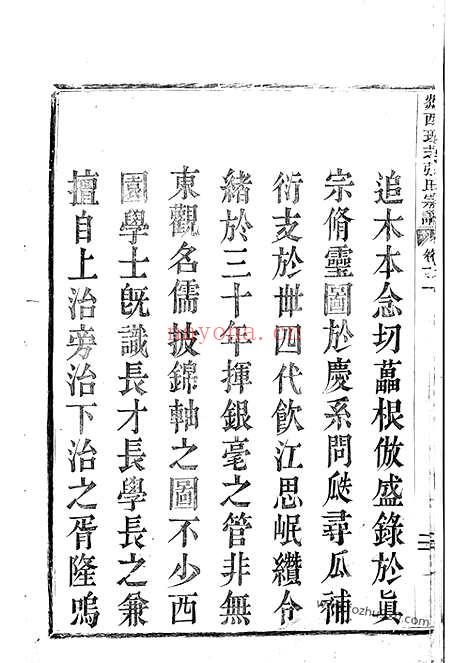 追木本念切藟根倣盛錄於眞
宗脩靈圖於慶系問瓞尋瓜補
衍支於丗四代飮江思岷纘令
緒於三十年揮銀毫之管非無
東觀名儒披錦軸之圖不少西
園學士旣識長才長學長之兼
擅自上治旁治下治之胥隆嗚
nayoha.cn